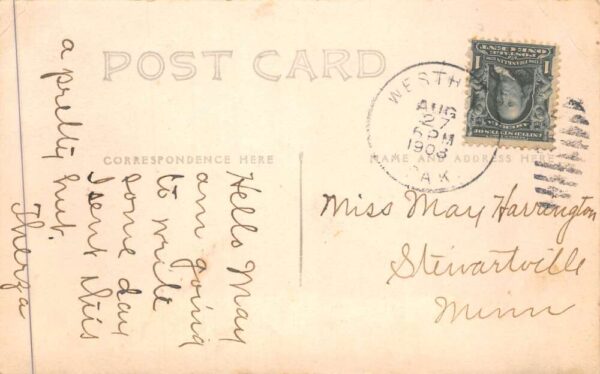 POST CARD
CORRESPONDENCE HERE
NAME AND ADDRESS HERE
WESTH
AUG
27
5 PM
1908
DAK.
1 POSTAGE 1
ONE CENT
Hello May
am going
to write
some day
I sent this
a pretty
hut.
Therza
Miss May Harrington
Stewartville
Minn